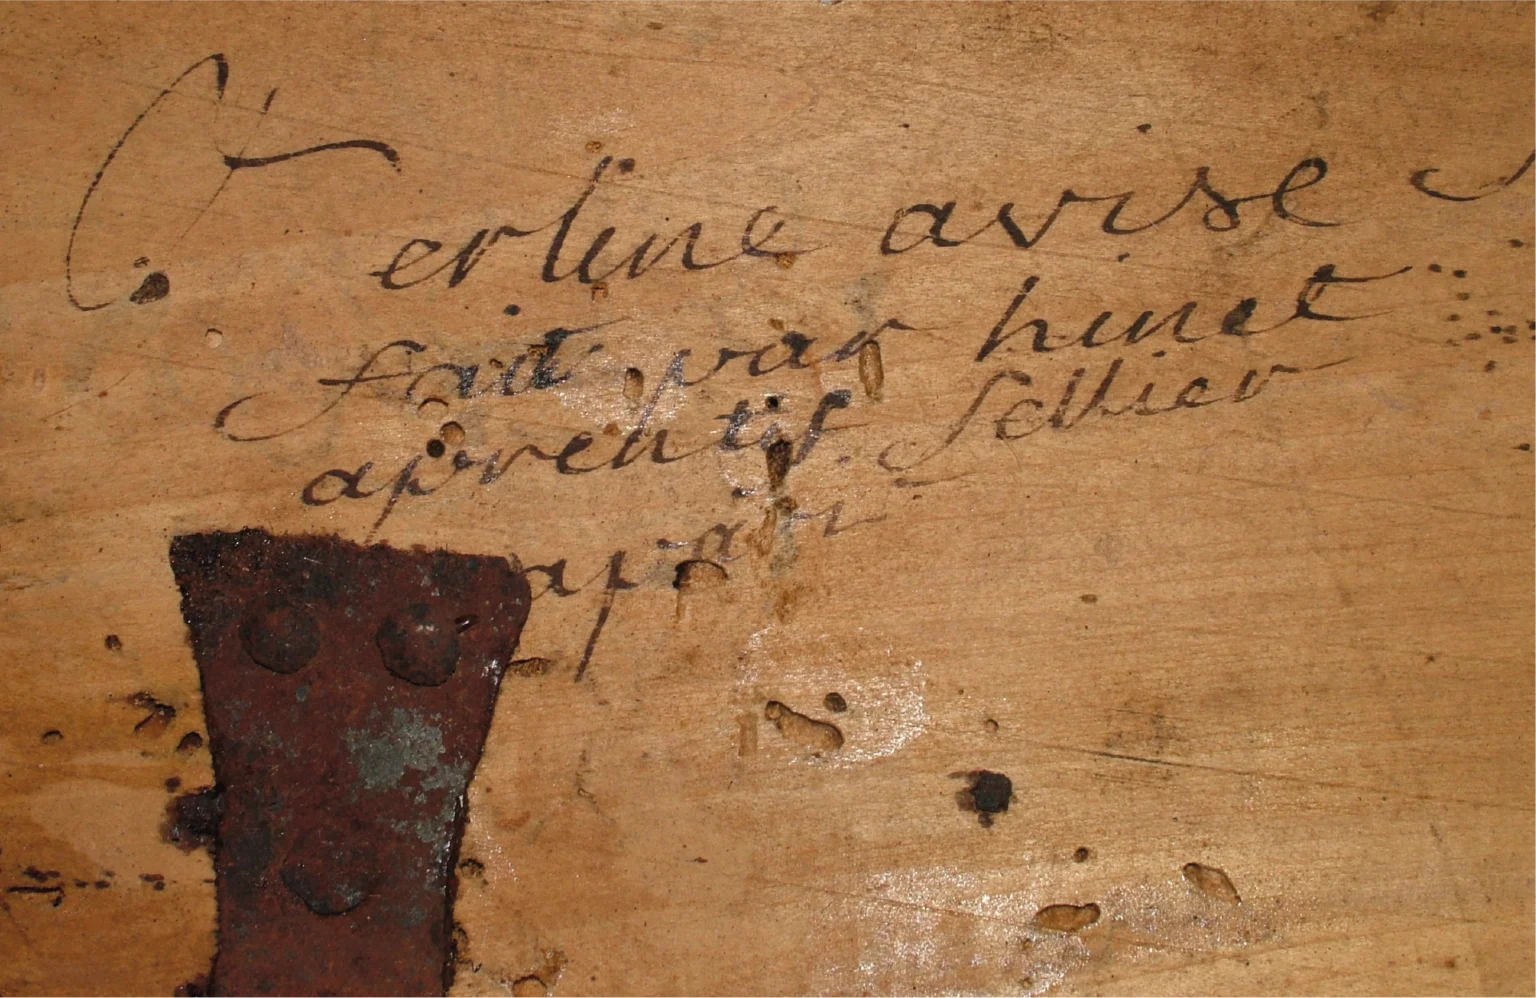 Berline avise
fait par hinet
aprentif Sellier
a paris